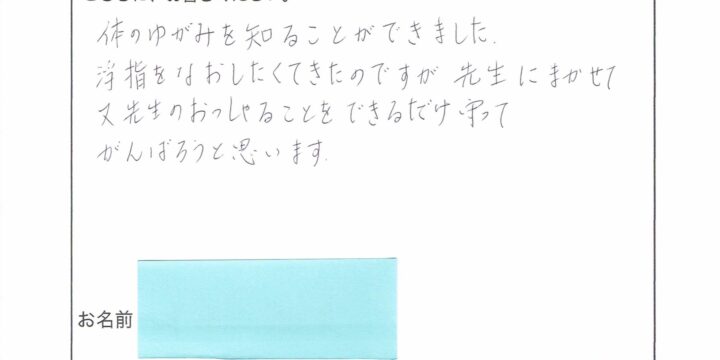 体のゆがみを知ることができました.
浮指をなおしたくてきたのですが 先生にまかせて
又先生のおっしゃることをできるだけ守って
がんばろうと思います.
お名前